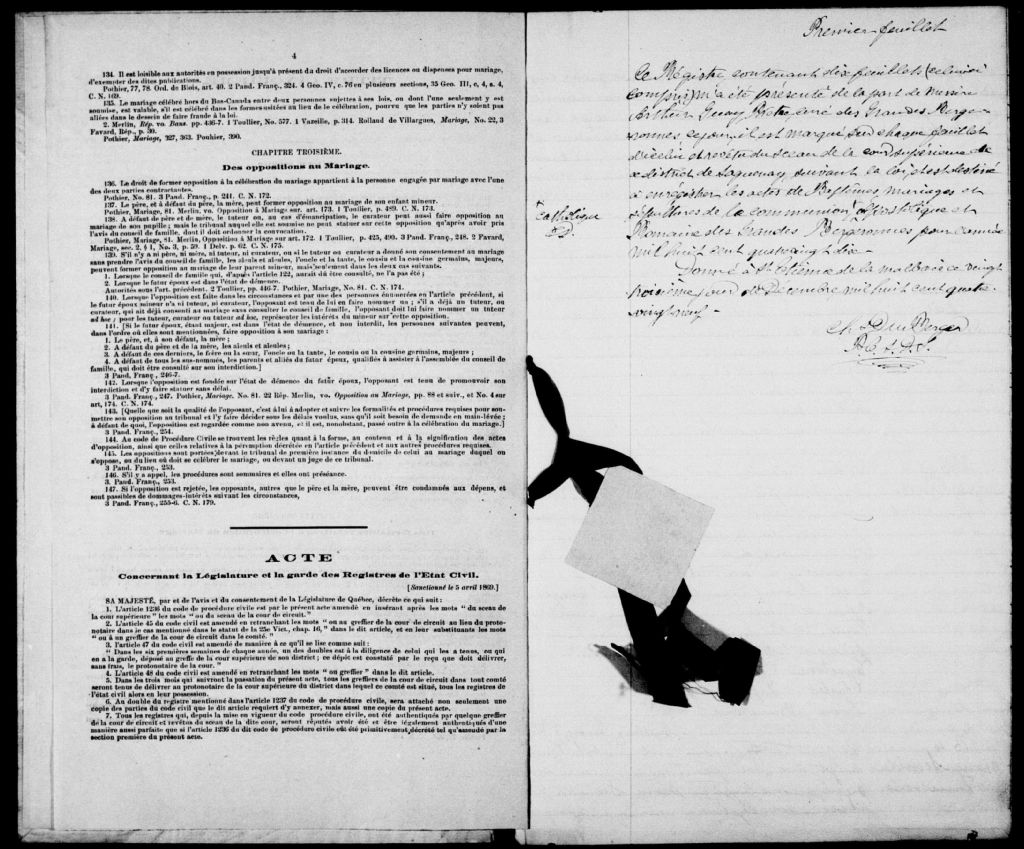 4
134. Il est loisible aux autorités en possession jusqu'à présent du droit d'accorder des licences ou dispenses pour mariage,
d'exempter des dites publications.
Pothier, 77, 78. Ord. de Blois, art. 40. 2 Pand. Franç., 324. 4 Geo. IV, c. 76 en plusieurs sections, 35 Geo. III, c, 4, s. 4,
C. N. 169.
135. Le mariage célébré hors du Bas-Canada entre deux personnes sujettes à ses lois, ou dont l'une seulement y est
soumise, est valable, s'il est célébré dans les formes usitées au lieu de la célébration, pourvu que les parties n'y soient pas
allées dans le dessein de faire fraude à la loi.
2. Merlin, Rép. vo. Bans. pp. 436-7. 1 Toullier, No. 577. 1 Vazeille, p. 314. Rolland de Villargues, Mariage, No. 22, 3
Favard, Rép., p. 30.
Pothier, Mariage, 327, 363. Pouhier, 390.
CHAPITRE TROISIÈME.
Des oppositions au Mariage.
136. Le droit de former opposition à la célébration du mariage appartient à la personne engagée par mariage avec l'une
des deux parties contractantes.
Pothier, No. 81. 3 Pand. Franç., p. 241. C. N. 172.
137. Le père, et à défaut du père, la mère, peut former opposition au mariage de son enfant mineur.
Pothier, Mariage, 81. Merlin. vo. Opposition à Mariage sur. art. 173. 1 Toullier, p. 489. C. N. 173.
138. A défaut de père et de mère, le tuteur ou, au cas d'émancipation, le curateur peut aussi faire opposition au
mariage de son pupille ; mais le tribunal auquel elle est soumise ne peut statuer sur cette opposition qu'après avoir pris
l'avis du conseil de famille, dont il doit ordonner la convocation.
Pothier, Mariage, 81. Merlin, Opposition à Mariage sur art. 172. 1 Toullier, p. 425, 490. 3 Pand. Franç., 248. 2 Favard,
Mariage, sec. 2, § 1, No. 3, p. 59. 1 Delv. p. 62. C. N. 175.
139. S'il n'y a ni père, ni mère, ni tuteur, ni curateur, ou si le tuteur ou curateur a donné son consentement au mariage
sans prendre l'avis du conseil de famille, les aïeuls et aïeules, l'oncle et la tante, le cousin et la cousine germains, majeurs,
peuvent former opposition au mariage de leur parent mineur, mais seulement dans les deux cas suivants.
1. Lorsque le conseil de famille qui, d'après l'article 122, aurait dû être consulté, ne l'a pas été ;
2. Lorsque le futur époux est dans l'état de démence.
Autorités sous l'art. précédent. 2 Toullier, pp. 446-7. Pothier, Mariage, No. 81. C. N. 174.
140. Lorsque l'opposition est faite dans les circonstances et par une des personnes énumérées en l'article précédent, si
le futur époux mineur n'a ni tuteur, ni curateur, l'opposant est tenu de lui en faire nommer un ; s'il a déjà un tuteur, ou
curateur, qui ait déjà consenti au mariage sans consulter le conseil de famille, l'opposant doit lui faire nommer un tuteur
ad hoc ; pour les tuteur, curateur ou tuteur ad hoc, représenter les intérêts du mineur sur cette opposition.
141. [Si le futur époux, étant majeur, est dans l'état de démence, et non interdit, les personnes suivantes peuvent,
dans l'ordre où elles sont mentionnées, faire opposition à son mariage :
1. Le père, et, à son défaut, la mère ;
2. A défaut du père et de la mère, les aïeuls et aïeules ;
3. A défaut de ces derniers, le frère ou la sœur, l'oncle ou la tante, le cousin ou la cousine germains, majeurs ;
4. A défaut de tous les sus-nommés, les parents et alliés du futur époux, qualifiés à assister à l'assemblée du conseil de
famille, qui doit être consulté sur son interdiction.]
3 Pand. Franç., 246-7.
142. Lorsque l'opposition est fondée sur l'état de démence du futur époux, l'opposant est tenu de promouvoir son
interdiction et d'y faire statuer sans délai.
3 Pand. Franç., 247. Pothier, Mariage. No. 81. 22 Rép. Merlin, vo. Opposition au Mariage, pp. 88 et suiv., et No. 4 sur
art, 174. C. N. 174.
143. [Quelle que soit la qualité de l'opposant, c'est à lui à adopter et suivre les formalités et procédures requises pour sou-
mettre son opposition au tribunal et l'y faire décider sous les délais voulus, sans qu'il soit besoin de demande en main-levée ;
à défaut de quoi, l'opposition est regardée comme non avenu, et il est, nonobstant, passé outre à la célébration du mariage.]
3 Pand. Franç., 254.
144. Au code de Procédure Civile se trouvent les règles quant à la forme, au contenu et à la signification des actes
d'opposition, ainsi que celles relatives à la péremption décrétée en l'article précédent et aux autres procédures requises.
145. Les oppositions sont portées devant le tribunal de première instance du domicile de celui au mariage duquel on
s'oppose, ou du lieu où doit se célébrer le mariage, ou devant un juge de ce tribunal.
3 Pand. Franç., 253.
146. S'il y a appel, les procédures sont sommaires et elles ont préséance.
3. Pand. Franç., 253.
147. Si l'opposition est rejetée, les opposants, autres que le père et la mère, peuvent être condamnés aux dépens, et
sont passibles de dommages-intérêts suivant les circonstances,
3 Pand. Franç., 255-6. C. N. 179.
ACTE
Concernant la Législature et la garde des Registres de l'Etat Civil.
[Sanctionné le 5 avril 1869.]
SA MAJESTÉ, par et de l'avis et du consentement de la Législature de Québec, décrète ce qui suit :
1. L'article 1236 du code de procédure civile est par le présent acte amendé en insérant après les mots " du sceau de
la cour supérieure " les mots " ou du sceau de la cour de circuit."
2. L'article 45 du code civil est amendé en retranchant les mots " ou au greffier de la cour de circuit au lieu du proto-
notaire dans le cas mentionné dans le statut de la 25e Vict., chap. 16," dans le dit article, et en leur substituants les mots
" ou à un greffier de la cour de circuit dans le comté."
3. L'article 47 du code civil est amendé de manière à ce qu'il se lise comme suit :
" Dans les six premières semaines de chaque année, un des doubles est à la diligence de celui qui les a tenus, ou qui
en a la garde, déposé au greffe de la cour supérieure de son district ; ce dépôt est constaté par le reçu que doit délivrer,
sans frais, le protonotaire de la cour. "
4. L'article 48 du code civil est amendé en retranchant les mots " ou greffier " dans le dit article.
5. Dans les trois mois qui suivront la passation du présent acte, tous les greffiers de la cour de circuit dans tout comté
seront tenus de délivrer au protonotaire de la cour supérieure du district dans lequel ce comté est situé, tous les registres de
l'état civil alors en leur possession.
6. Au double du registre mentionné dans l'article 1237 du code de procédure civile, sera attaché non seulement une
copie des parties du code civil que le dit article requiert d'y annexer, mais aussi une copie du présent acte.
7. Tous les registres qui, depuis la mise en vigueur du code procédure civile, ont été authentiqués par quelque greffier
de la cour de circuit et revêtus du sceau de la dite cour, seront réputés avoir été et être légalement authentiqués d'une
manière aussi parfaite que si l'article 1236 du dit code de procédure civile eût été primitivement décrété tel qu'amendé par la
section première du présent acte.
Premier feuillet
Ce Régistre contenant dix feuillets (celui-ci
compris) m'a été présenté de la part de messire
Arthur Guay Ptre, curé des Grandes Berge-
ronnes ce jour, il est marqué sur chaque feuillet
d'icelui et revêtu du sceau de la cour supérieure de
ce district de Saguenay, suivant la loi, et est destiné
à enrégistrer les actes de Baptêmes, mariages et
sépultures de la communion apostolique et
x catholique
Romaine des Grandes Bergeronnes pour l'année
mil huit cent quatre-vingt dix
Donné à St. Etienne de la malbaie ce vingt
troisième jour de Décembre mil huit cent quatre-
vingt neuf -
Ch Du Berger
P. C. S. D. S.